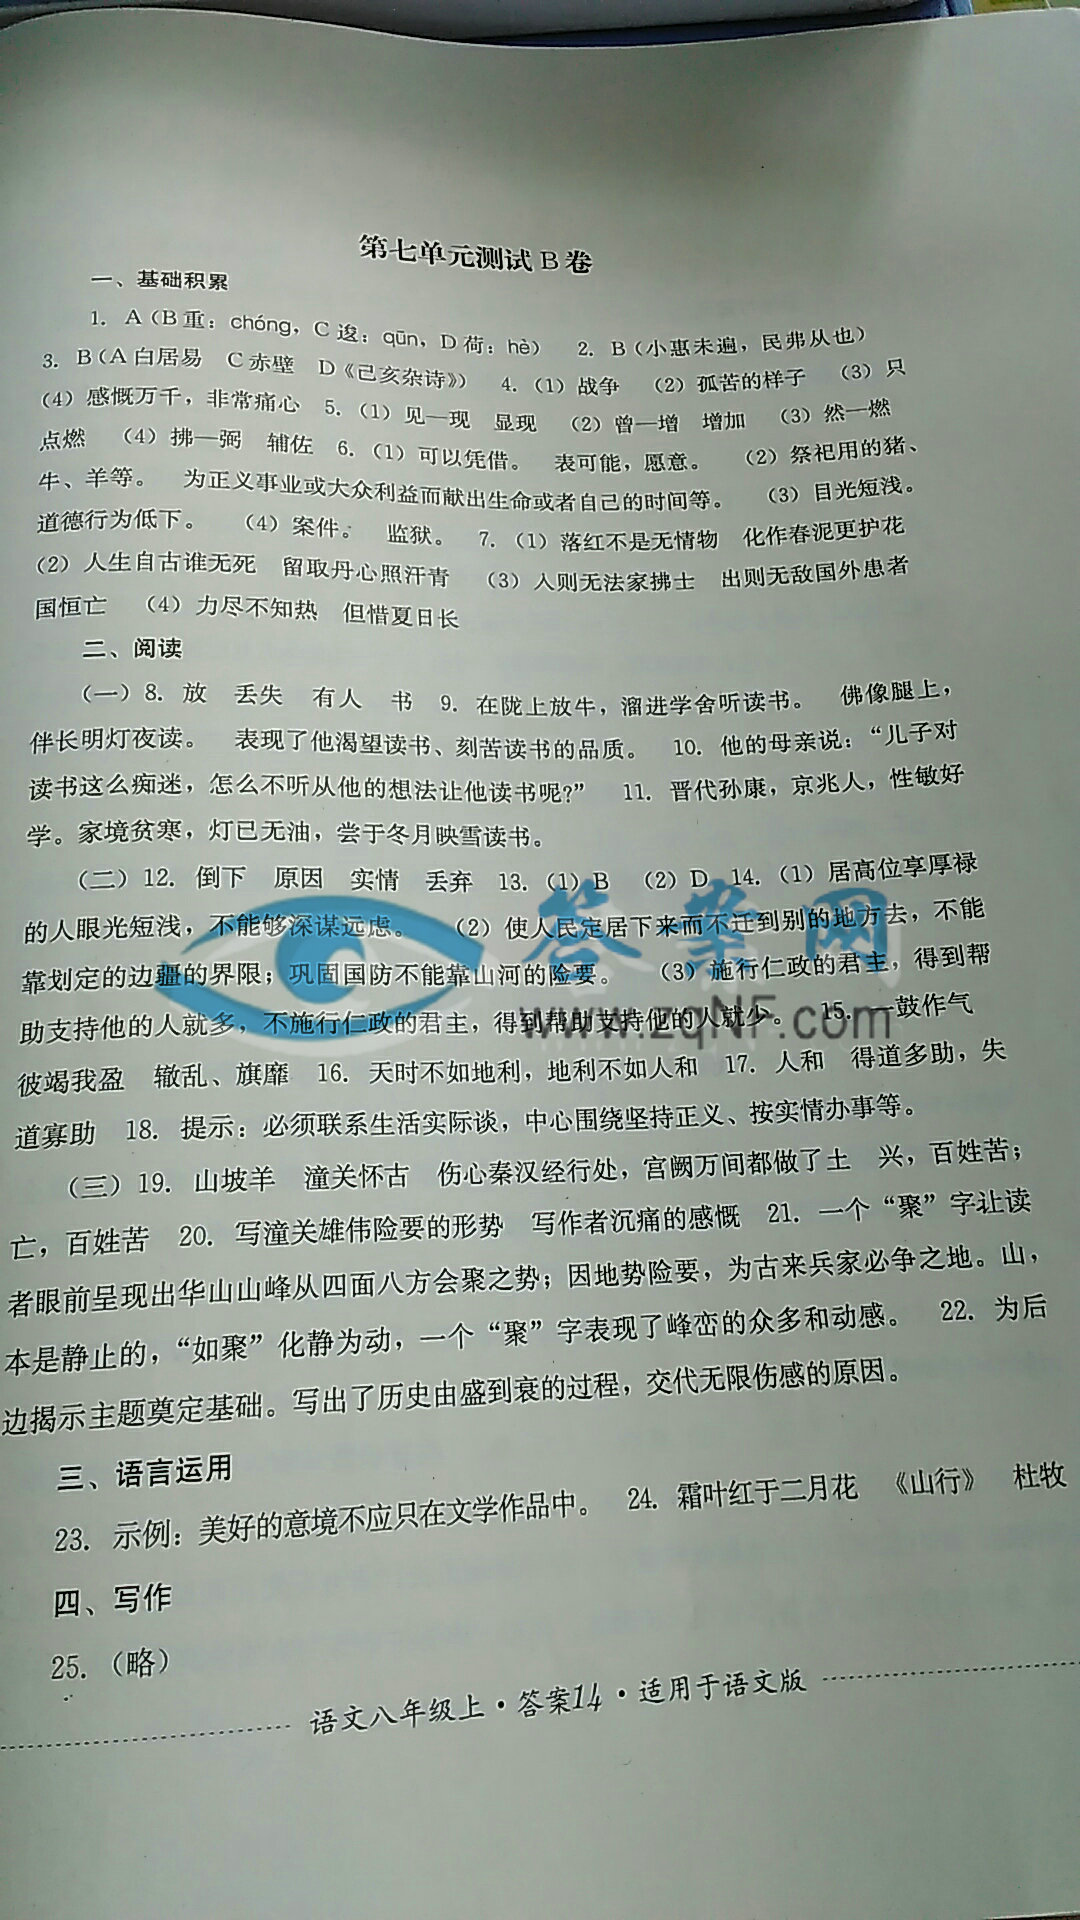 第七单元测试B卷
一、基础积累
1. A（B重：chóng，C逡：qūn，D荷：hè） 2. B（小惠未遍，民弗从也）
3. B（A白居易 C赤壁 D《己亥杂诗》） 4.（1）战争 （2）孤苦的样子 （3）只
（4）感慨万千，非常痛心 5.（1）见—现 显现 （2）曾—增 增加 （3）然—燃
点燃 （4）拂—弼 辅佐 6.（1）可以凭借。 表可能，愿意。 （2）祭祀用的猪、
牛、羊等。 为正义事业或大众利益而献出生命或者自己的时间等。 （3）目光短浅。
道德行为低下。 （4）案件。 监狱。 7.（1）落红不是无情物 化作春泥更护花
（2）人生自古谁无死 留取丹心照汗青 （3）入则无法家拂士 出则无敌国外患者
国恒亡 （4）力尽不知热 但惜夏日长
二、阅读
（一）8. 放 丢失 有人 书 9. 在陇上放牛，溜进学舍听读书。 佛像腿上，
伴长明灯夜读。 表现了他渴望读书、刻苦读书的品质。 10. 他的母亲说：“儿子对
读书这么痴迷，怎么不听从他的想法让他读书呢？” 11. 晋代孙康，京兆人，性敏好
学。家境贫寒，灯已无油，尝于冬月映雪读书。
（二）12. 倒下 原因 实情 丢弃 13.（1）B （2）D 14.（1）居高位享厚禄
的人眼光短浅，不能够深谋远虑。 （2）使人民定居下来而不迁到别的地方去，不能
靠划定的边疆的界限；巩固国防不能靠山河的险要。 （3）施行仁政的君主，得到帮
助支持他的人就多，不施行仁政的君主，得到帮助支持他的人就少。 15. 一鼓作气
彼竭我盈 辙乱、旗靡 16. 天时不如地利，地利不如人和 17. 人和 得道多助，失
道寡助 18. 提示：必须联系生活实际谈，中心围绕坚持正义、按实情办事等。
（三）19. 山坡羊 潼关怀古 伤心秦汉经行处，宫阙万间都做了土 兴，百姓苦；
亡，百姓苦 20. 写潼关雄伟险要的形势 写作者沉痛的感慨 21. 一个“聚”字让读
者眼前呈现出华山山峰从四面八方会聚之势；因地势险要，为古来兵家必争之地。山，
本是静止的，“如聚”化静为动，一个“聚”字表现了峰峦的众多和动感。 22. 为后
边揭示主题奠定基础。写出了历史由盛到衰的过程，交代无限伤感的原因。
三、语言运用
23. 示例：美好的意境不应只在文学作品中。 24. 霜叶红于二月花 《山行》 杜牧
四、写作
25.（略）
语文八年级上·答案14·适用于语文版
答案网
www.zqNF.com